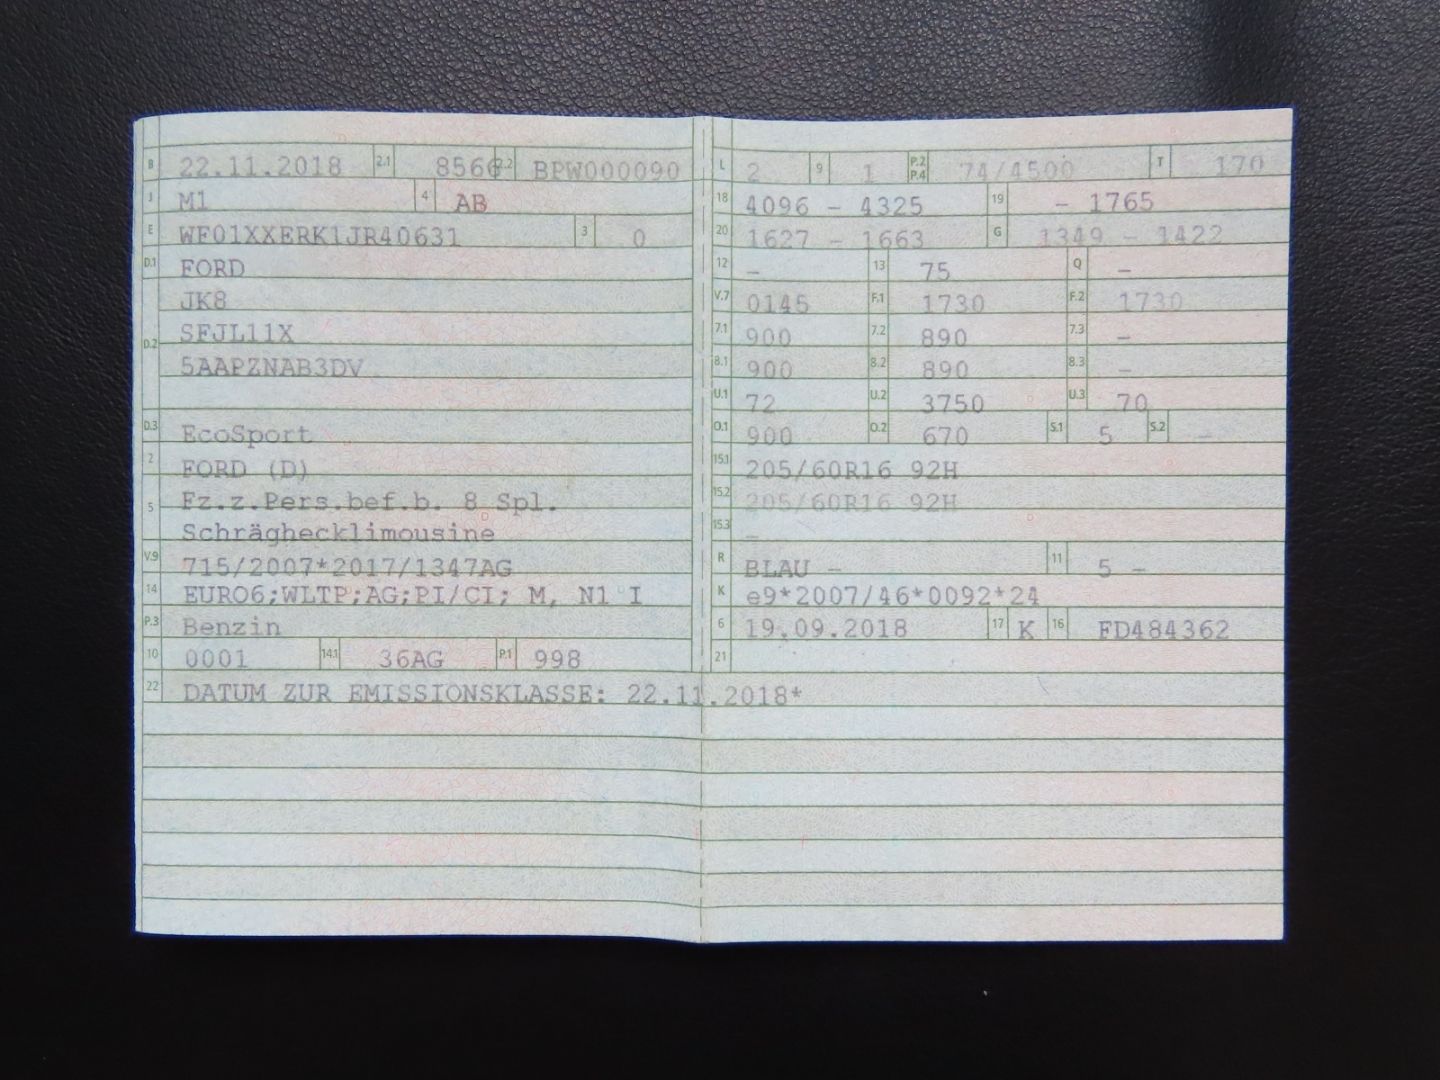 B 22.11.2018 2.1 8566 2.2 BPW000090
J M1 4 AB
E WF01XXERK1JR40631 3 0
D.1 FORD
JK8
D.2 SFJL11X
5AAPZNAB3DV
D.3 EcoSport
2 FORD (D)
5 Fz.z.Pers.bef.b. 8 Spl.
Schräghecklimousine
V.9 715/2007*2017/1347AG
14 EURO6;WLTP;AG;PI/CI; M, N1 I
P.3 Benzin
10 0001 14.1 36AG P.1 998
22 DATUM ZUR EMISSIONSKLASSE: 22.11.2018*
L 2 9 1 P.2 P.4 74/4500 T 170
18 4096 - 4325 19 - 1765
20 1627 - 1663 G 1349 - 1422
12 - 13 75 Q -
V.7 0145 F.1 1730 F.2 1730
7.1 900 7.2 890 7.3 -
8.1 900 8.2 890 8.3 -
U.1 72 U.2 3750 U.3 70
O.1 900 O.2 670 S.1 5 S.2 -
15.1 205/60R16 92H
15.2 205/60R16 92H
15.3 -
R BLAU - 11 5 -
K e9*2007/46*0092*24
6 19.09.2018 17 K 16 FD484362
21